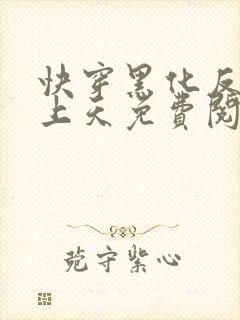 快穿黑化反
上天免费阅
苑守紫心